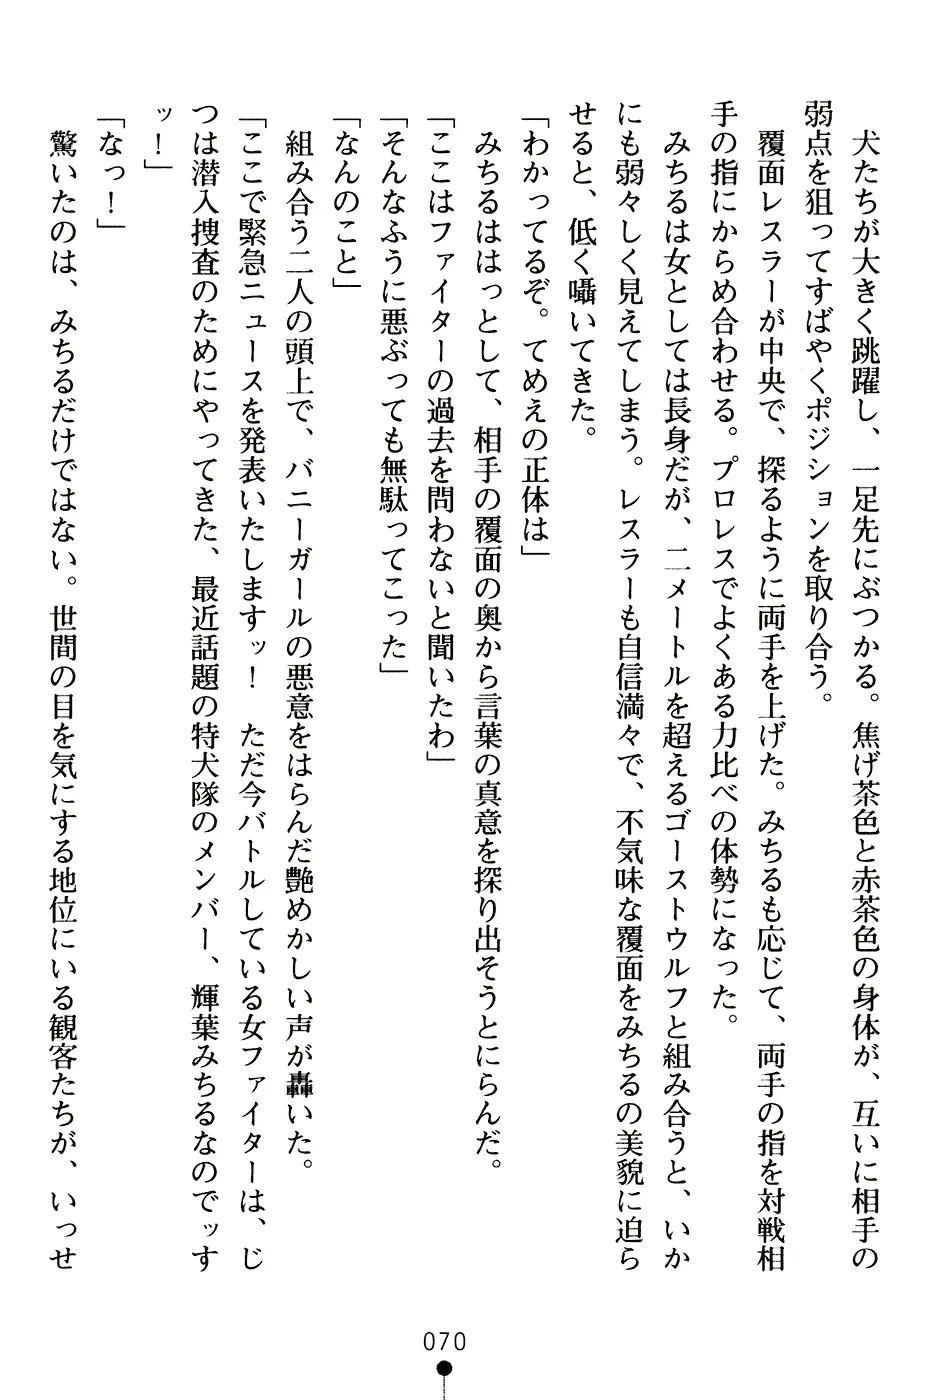 犬たちが大きく跳躍し、一足先にぶつかる。焦げ茶色と赤茶色の身体が、互いに相手の
弱点を狙ってすばやくポジションを取り合う。
覆面レスラーが中央で、探るように両手を上げた。みちるも応じて、両手の指を対戦相
手の指にからめ合わせる。プロレスでよくある力比べの体勢になった。
みちるは女としては長身だが、二メートルを超えるゴーストウルフと組み合うと、いか
にも弱々しく見えてしまう。レスラーも自信満々で、不気味な覆面をみちるの美貌に迫ら
せると、低く囁いてきた。
「わかってるぞ。てめえの正体は」
みちるははっとして、相手の覆面の奥から言葉の真意を探り出そうとにらんだ。
「ここはファイターの過去を問わないと聞いたわ」
「そんなふうに悪ぶっても無駄ってこった」
「なんのこと」
組み合う二人の頭上で、バニーガールの悪意をはらんだ艶めかしい声が轟いた。
「ここで緊急ニュースを発表いたしますッ！　ただ今バトルしている女ファイターは、じ
つは潜入捜査のためにやってきた、最近話題の特犬隊のメンバー、輝葉みちるなのでッす
ッ！」
「なっ！」
驚いたのは、みちるだけではない。世間の目を気にする地位にいる観客たちが、いっせ
070